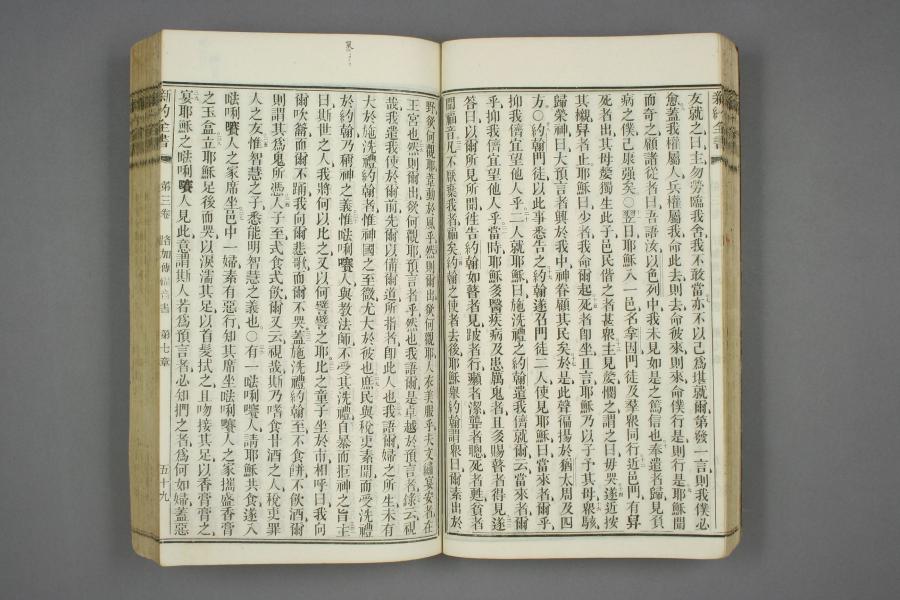 新約全書
友就之曰主勿勞臨我舍我不敢當亦不以己爲堪就爾第發一言則我僕必
愈蓋我權屬人兵權屬我命此去則去命彼來則來命僕行是則行是耶穌聞
而奇之顧諸從者曰吾語汝以色列中我未見如是之篤信也奉遣者歸見負
病之僕已康强矣〇翌日耶穌入一邑名拿因門徒及羣衆同行近邑門有舁
死者出其母嫠獨生此子邑民偕之者甚衆主見嫠憫之謂之曰毋哭遂近按
其櫬舁者止耶穌曰少者我命爾起死者卽坐且言耶穌乃以子予其母衆駭
歸榮神曰大預言者興於我中神眷顧其民矣於是此聲徧揚於猶太周及四
方〇約翰門徒以此事悉告之約翰遂召門徒二人使見耶穌曰當來者爾乎
抑我儕宜望他人乎二人就耶穌曰施洗禮之約翰遣我儕就爾云當來者爾
乎抑我儕宜望他人乎當時耶穌多醫疾病及患厲鬼者且多賜瞽者得見遂
答曰以爾所見所聞往告約翰如瞽者見跛者行癩者潔聾者聰死者甦貧者
聞福音凡不厭棄我者福矣約翰之使者去後耶穌舉約翰謂衆曰爾素出於
野欲何觀耶葦動於風乎然則爾出欲何觀耶人衣美服乎夫文繡宴安者在
王宮也然則爾出欲何觀耶預言者乎然也我語爾是卓越於預言者錄云視
哉我遣我使於爾前先爾以備爾道所指者卽此人也我語爾婦之所生未有
大於施洗禮約翰者惟神國之至微尤大於彼也庶民與稅吏素聞而受洗禮
於約翰乃稱神之義惟㗭唎㘔人與教法師不受其洗禮自暴而拒神之旨主
曰斯世之人我將何以比之又以何譬譬之耶比之童子坐於市相呼曰我向
爾吹籥而爾不踊我向爾悲歌而爾不哭蓋施洗禮約翰至不食餅不飲酒爾
則謂其爲鬼所憑人子至式食式飲爾又云視哉斯乃嗜食甘酒之人稅吏罪
人之友惟智慧之子悉能明智慧之義也〇有一㗭唎㘔人請耶穌共食遂入
㗭唎㘔人之家席坐邑中一婦素有惡行知其席坐㗭唎㘔人之家攜盛香膏
之玉盒立耶穌足後而哭以淚濡其足以首髮拭之且吻接其足以香膏膏之
宴耶穌之㗭唎㘔人見此意謂斯人若爲預言者必知捫之者爲何如婦蓋惡
新約全書 第三卷 路加傳福音書 第七章 五十九